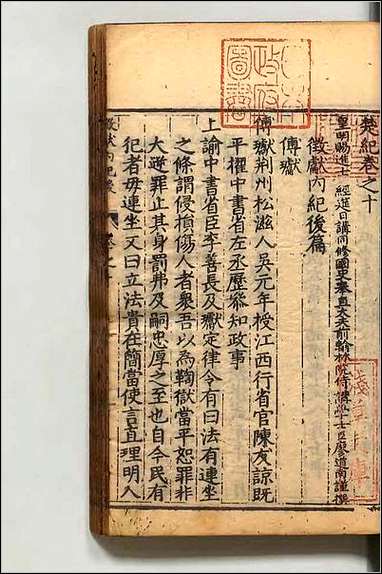 楚紀卷之十
皇明賜進士 經進日講同修國史奉直大夫前翰林院侍講學士臣廖道南謹撰
徵獻內紀後篇
傅瓛
傅瓛荆州松滋人吳元年授江西行省官陳友諒既
平擢中書省左丞歷叅知政事
上諭中書省臣李善長及瓛定律令有曰法有連坐
之條謂侵損傷人者衆吾以為鞫獄當平恕罪非
大逆罪止其身罰弗及嗣忠厚之至也自今民有
犯者毋連坐又曰立法貴在簡當使言直理明人